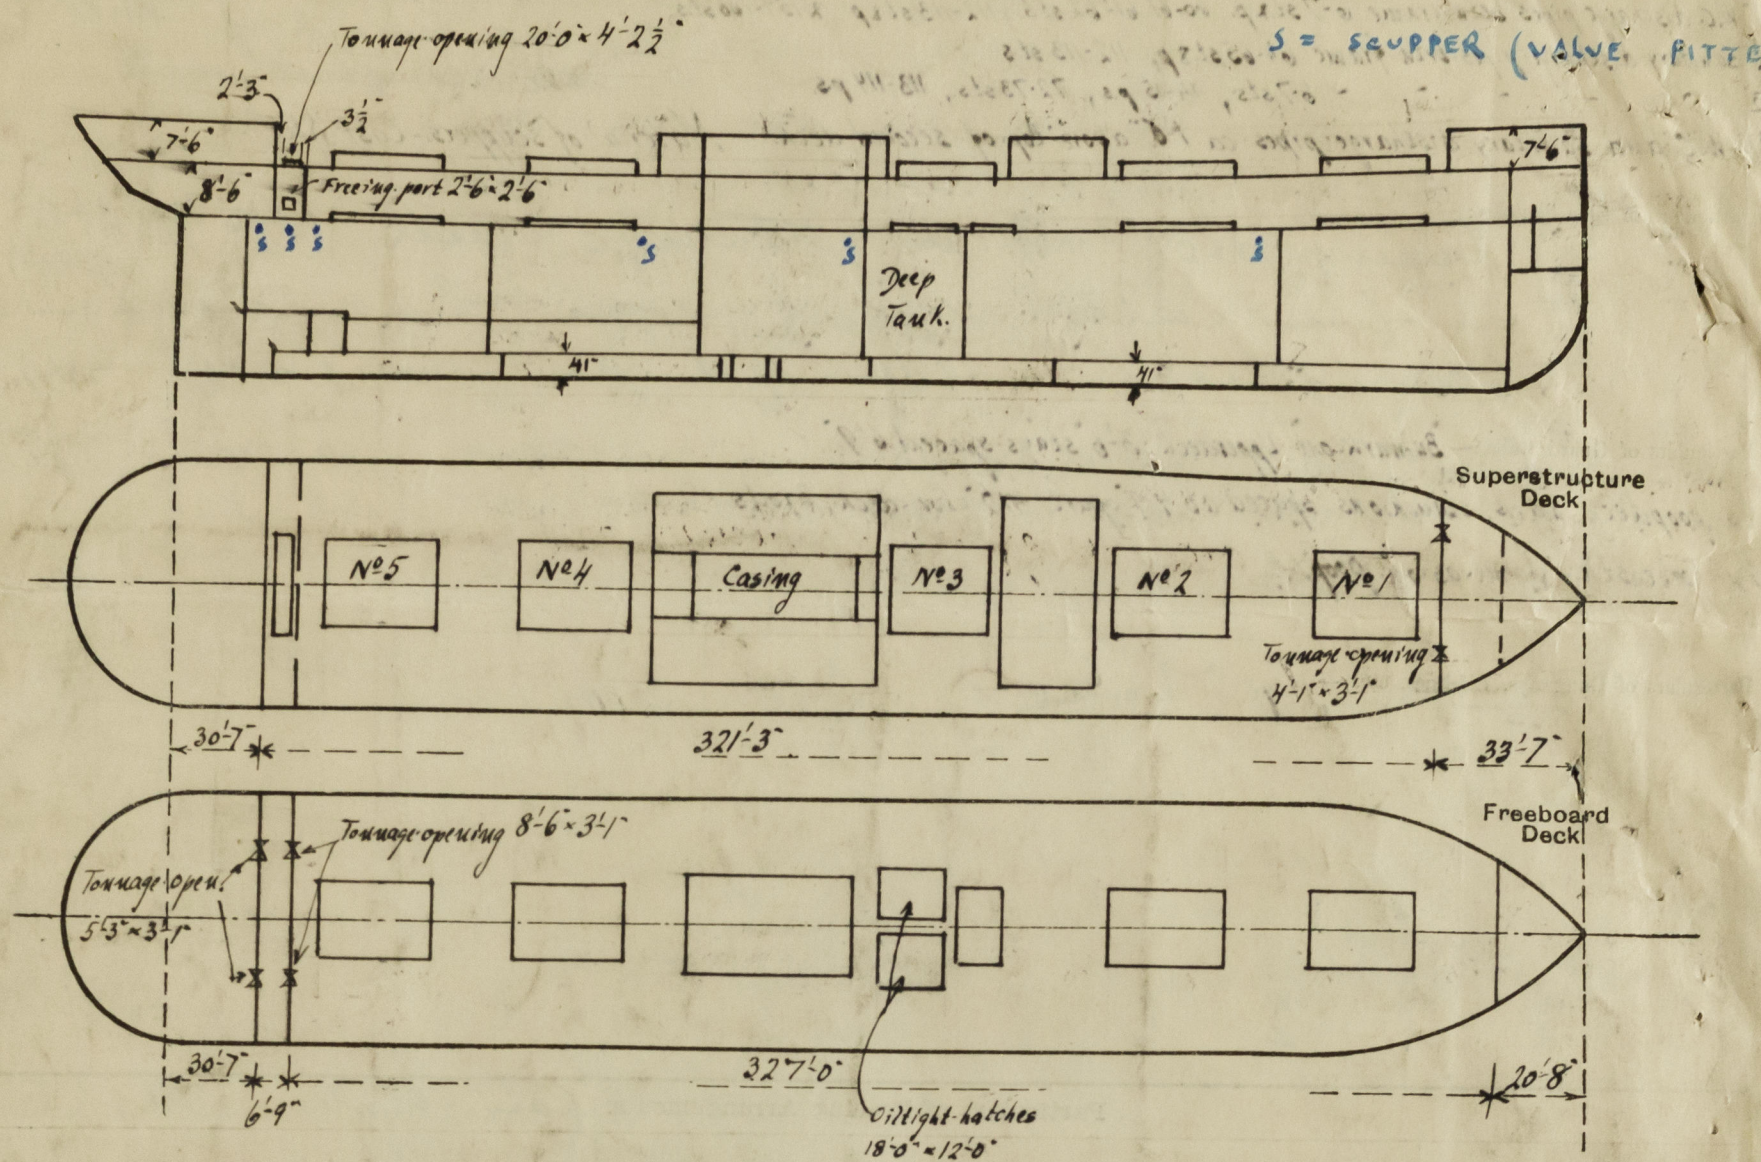 Tonnage opening 20'-0" × 4'-2½"
S = SCUPPER (VALVE FITTE
2'-3"
3½"
7'-6"
7'-6"
8'-6"
Freeing port 2'-6" × 2'-6"
S S S S S S
Deep
Tank.
41"
41"
Superstructure
Deck
Nº5
Nº4
Casing
Nº3
Nº2
Nº1
Tonnage opening
4'-1" × 3'-1"
30'-7"
321'-3"
33'-7"
Freeboard
Deck
Tonnage opening 8'-6" × 3'-1"
Tonnage open.
5'-3" × 3'-1"
30'-7"
327'-0"
20'-8"
6'-9"
Oiltight hatches
18'-0" × 12'-0"